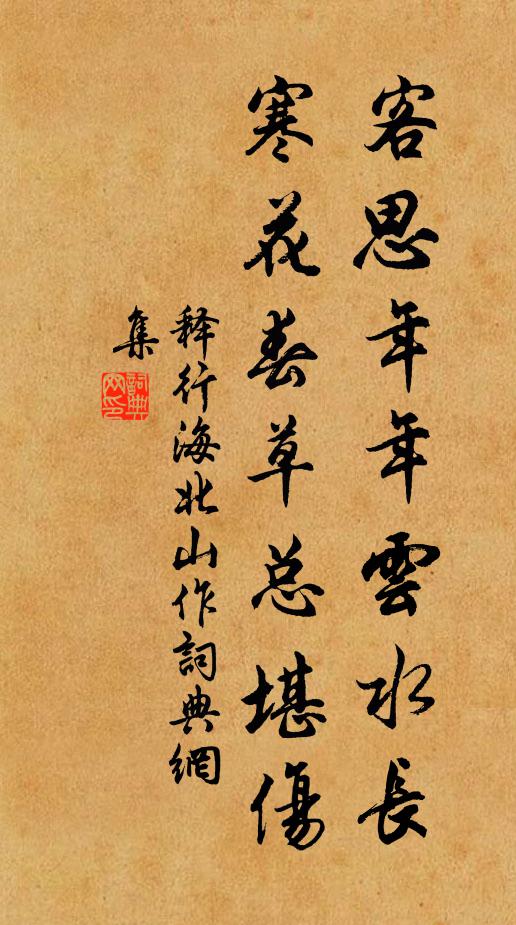 客思年年雲水長
寒花春草总堪傷
释行海北山作詞典網
集
詞典網印